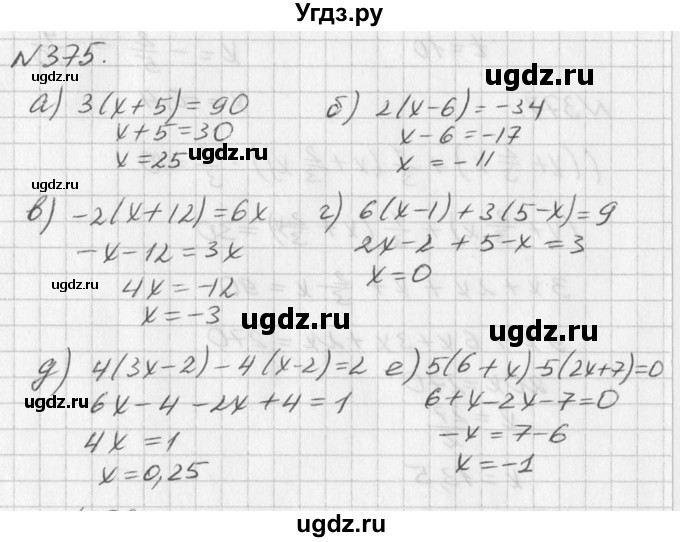 Угдз.ру
N375.
ugdz.ru
а) 3(x+5)=90
x+5=30
x=25
ugdz.ru
ugdz.ru
б) 2(x-6)=-34
x-6=-17
x=-11
ugdz.ru
в) -2(x+12)=6x
-x-12=3x
4x=-12
x=-3
ugdz.ru
ugdz.ru
г) 6(x-1)+3(5-x)=9
2x-2+5-x=3
x=0
ugdz.ru
д) 4(3x-2)-4(x-2)=2
6x-4-2x+4=1
4x=1
x=0,25
ugdz.ru
ugdz.ru
е) 5(6+x)-5(2x+7)=0
6+x-2x-7=0
-x=7-6
x=-1
ugdz.ru
ugdz.ru